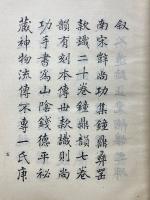 叙
南宋薛尚功集鐘鼎彝器
款識二十卷鐘鼎韻七卷
韻有刻本傳世款識則尚
功手書為山陰錢德平秘
藏神物流傳宋專一氏庫